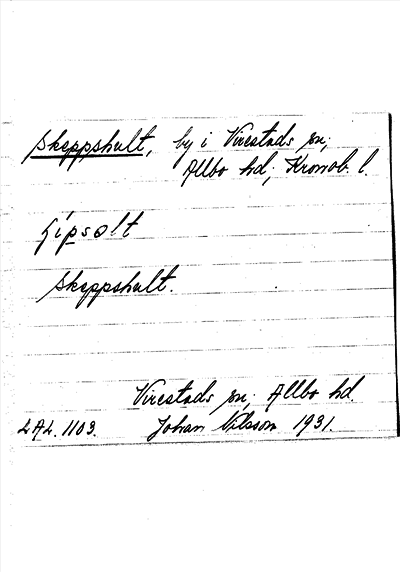 Skeppshult, by i Virestads sn,
Allbo hd, Kronob. l.
ʃípsɷlt
Skeppshult.
Virestads sn, Allbo hd.
LAL. 1103. Johan Nilsson 1931.